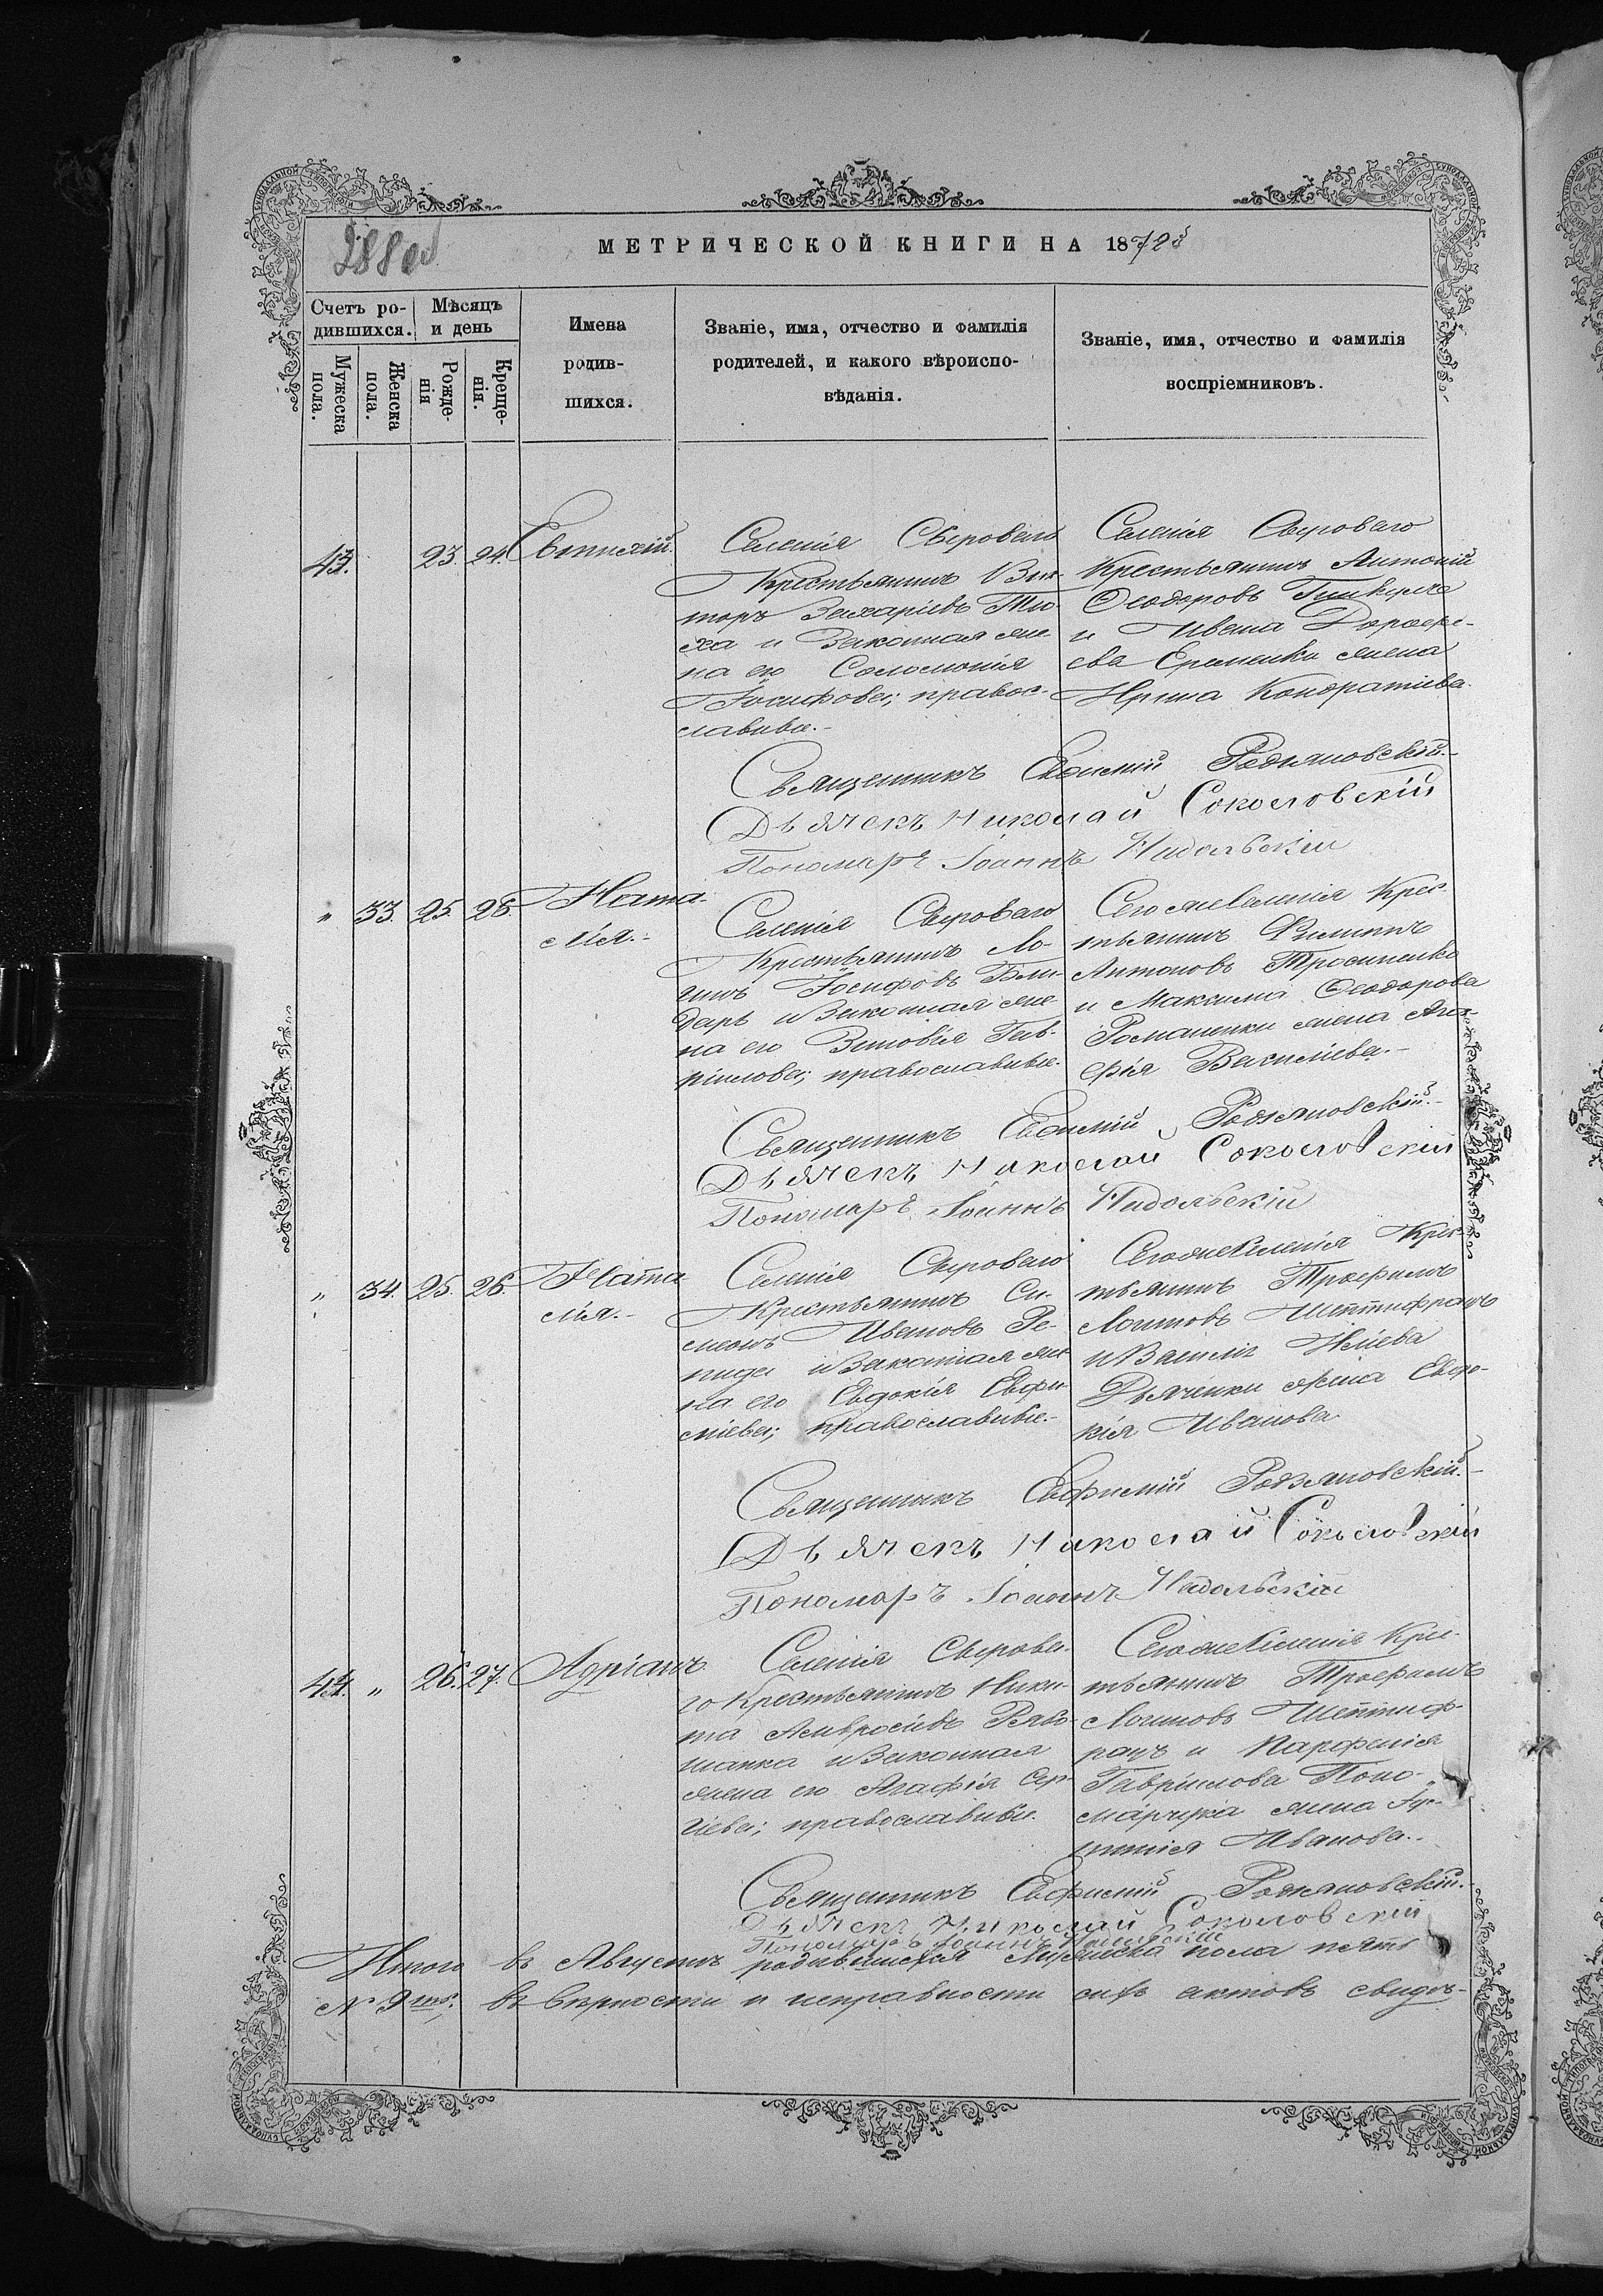 288 об
МЕТРИЧЕСКОЙ КНИГИ НА 1872й
Счетъ ро-
дившихся.
Мѣсяцъ
и день
Имена
родив-
шихся.
Званіе, имя, отчество и фамилія
родителей, и какого вѣроиспо-
вѣданія.
Званіе, имя, отчество и фамилія
воспріемниковъ.
Мужеска
пола.
Женска
пола.
Рожде-
нія
Креще-
нія.
43. 23. 24. Евтихій.
Селенія Сыроваго
Крестьянинъ Вик-
торъ Захаріевъ Тю-
ха и Законная же
на его Соломонія
Іосифова; правос-
лавные.-
Селенія Сыроваго
Крестьянинъ Антоній
Ѳеодоровъ
и Ивана Дорофе-
ева Еременки жена
Ирина Кондратіева.
Священникъ Евфимій Родзяновскій.-
Дьячекъ Николай Соколовскій
Пономаръ Іоаннъ Надольскій
" 33. 25. 26. Ната-
лія.-
Селенія Сыроваго
Крестьянинъ Ло-
гинъ Іосифовъ Бон-
дарь и Законная же
на его Зиновія Гав-
ріилова; православные.
Сего же Селенія Крес-
тьянинъ Филиппъ
Антоновъ Тросиненко
и Максима Ѳеодорова
Романенки жена Ага-
фія Василіева.-
Священникъ Евфимій Родзяновскій.-
Дьячекъ Николай Соколовскій
Пономаръ Іоаннъ Надольскій
" 34. 25. 26. Ната
лія.-
Селенія Сыроваго
Крестьянинъ Си-
меонъ Ивановъ Ре-
пида и Законная же
на его Евдокія Евфи-
міева; православные.-
Сего же Селенія Крес-
тьянинъ Трофимъ
Логиновъ Шептифрацъ
и Василія Иліева
Дьяченки жена Евдо-
кія Иванова
Священникъ Евфимій Родзяновскій.-
Дьячекъ Николай Соколовскій
Пономаръ Іоаннъ Надольскій
44. " 26. 27. Адріанъ.
Селенія Сырова-
го Крестьянинъ Ники-
та Амвросіевъ Рябо-
шапка и Законная
жена его Агафія Сер-
гіева; православные.
Сего же Селенія Крес-
тьянинъ Трофимъ
Логиновъ Шептиф-
рацъ и Парфенія
Гавріилова Поно-
марчука жена Іус-
тинія Иванова.-
Священникъ Евфимій Родзяновскій.-
Дьячекъ Николай Соколовскій
Пономаръ Іоаннъ Надольскій
Итого въ Августѣ родившихся Мужеска пола пять
Въ вѣрности и исправности сихъ актовъ свидѣ-